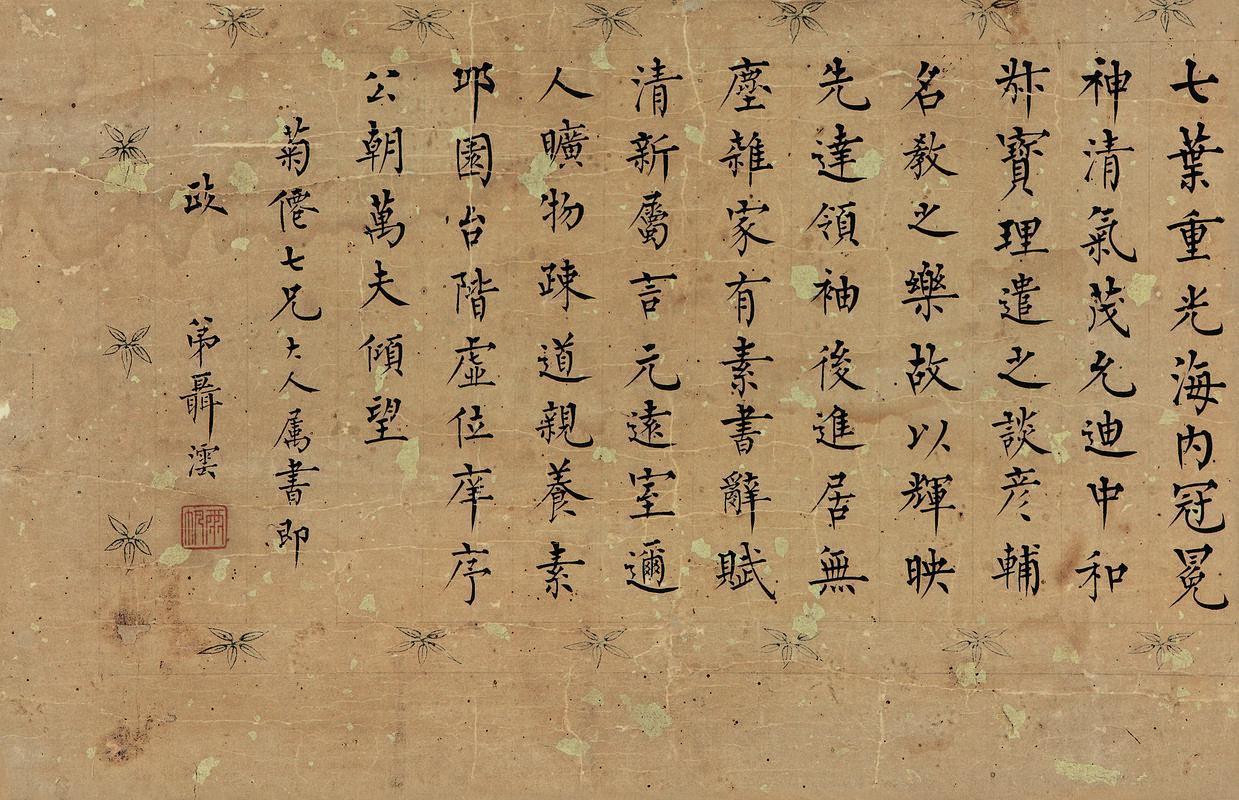 七葉重光海内冠冕
神清氣茂允迪中和
叔寶理遣之談彦輔
名教之樂故以輝映
先達領袖後進居無
塵雜家有素書辭賦
清新屬言元遠室邇
人曠物疎道親養素
邱園台階虚位庠序
公朝萬夫傾望
菊僊七兄大人属書即
政 弟聶澐
雨帆